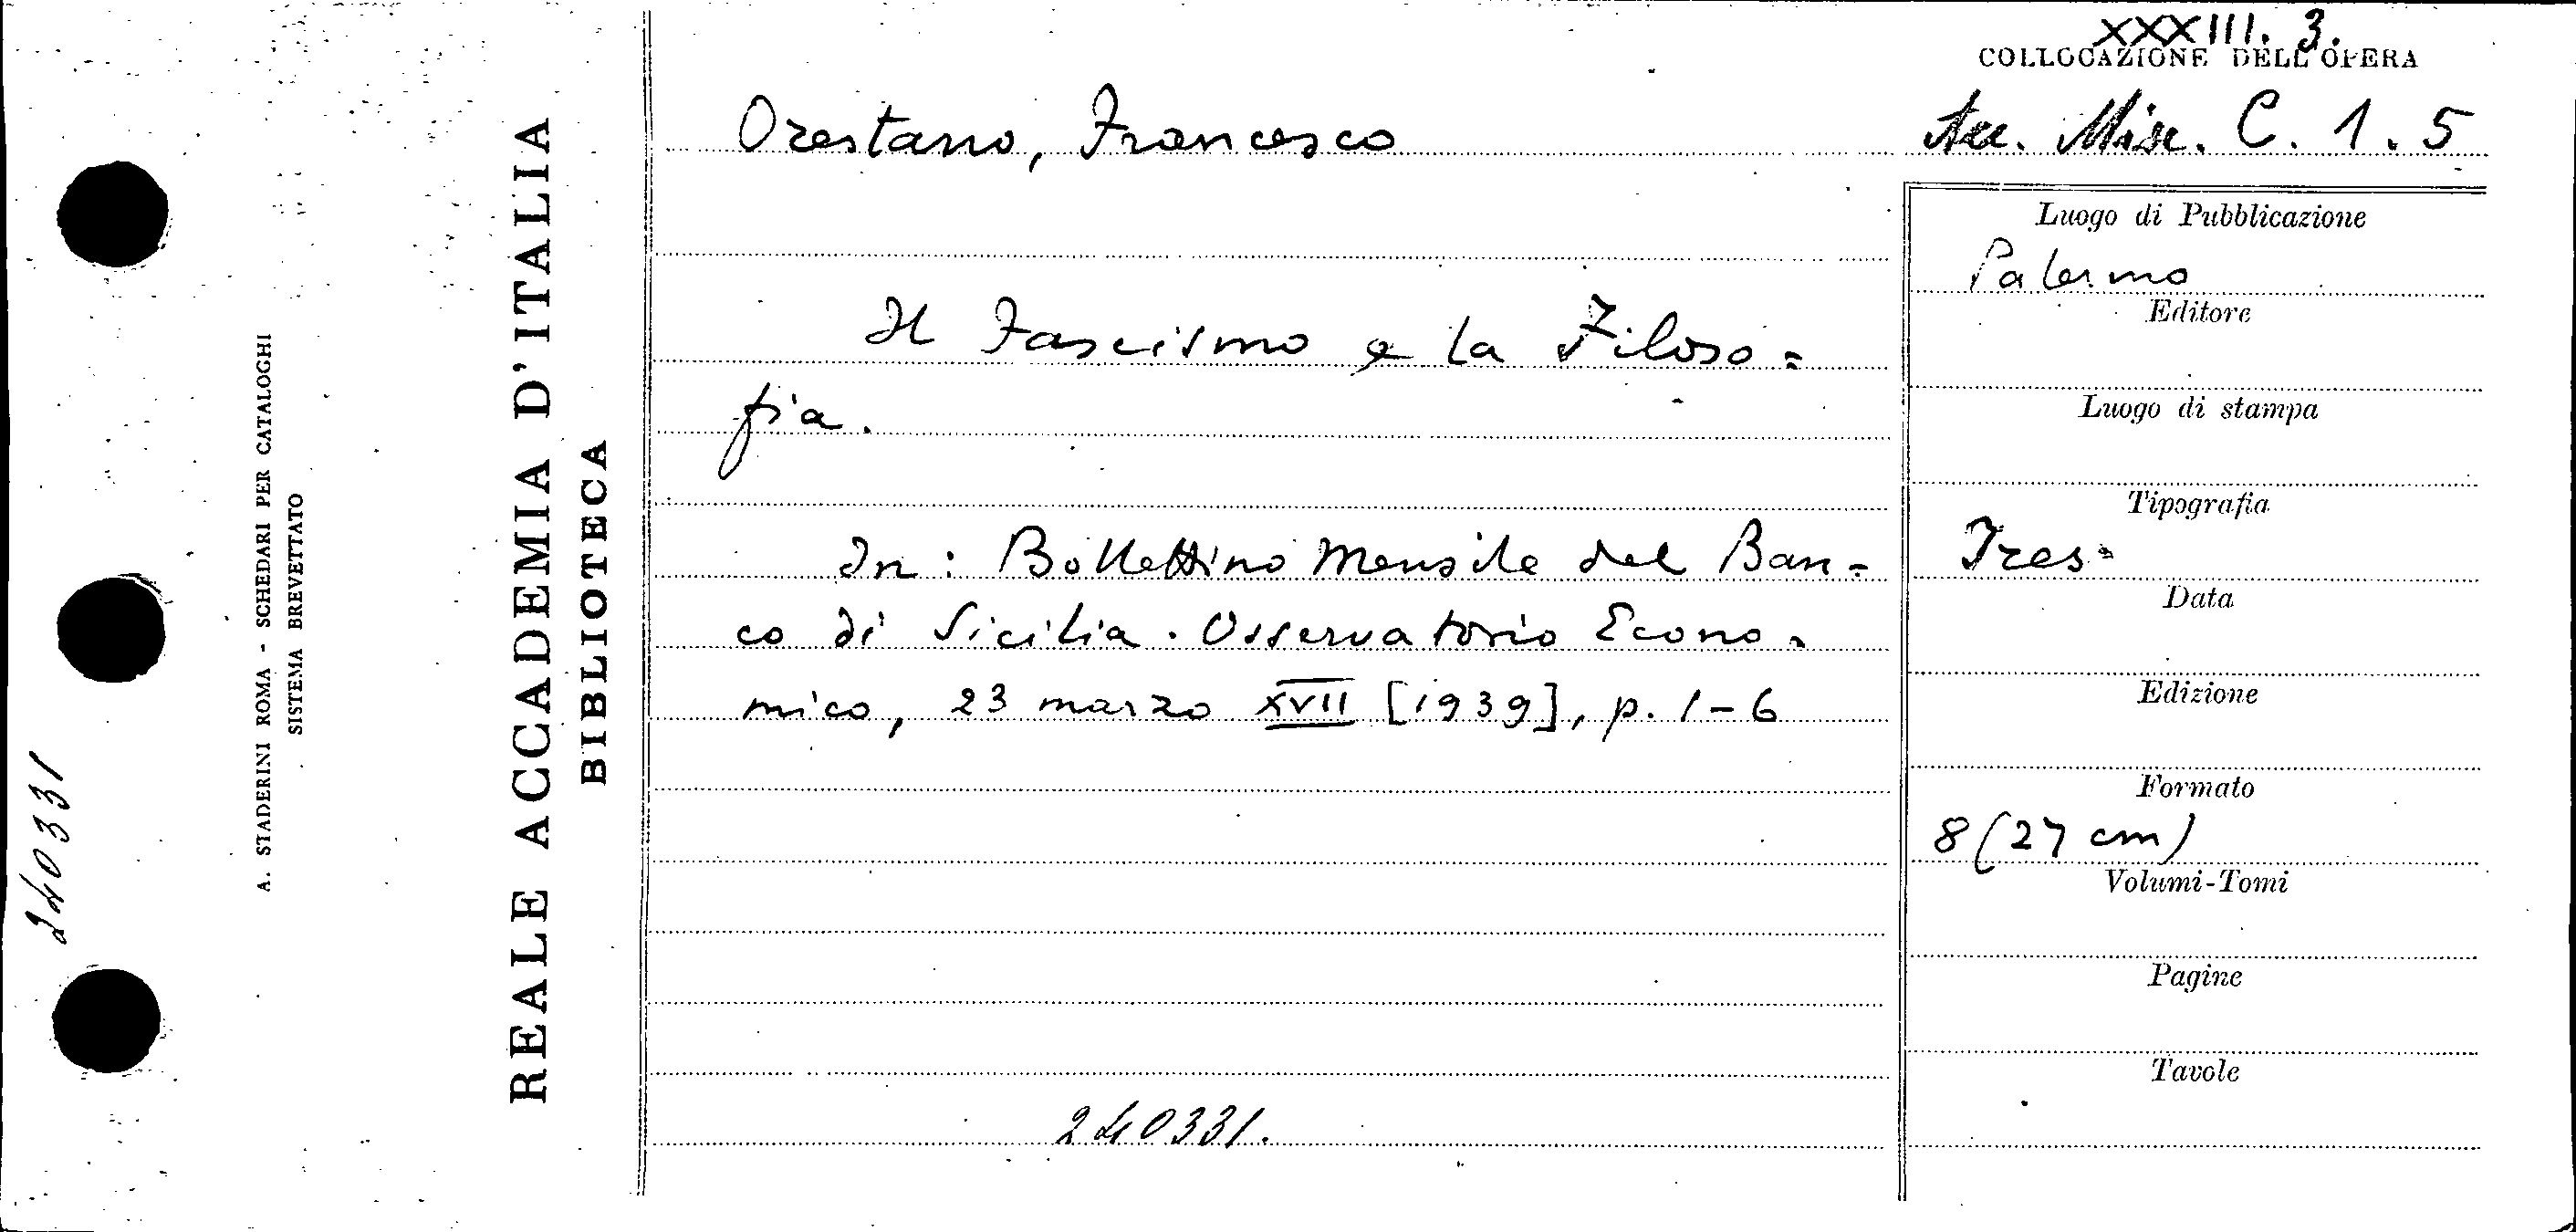 XXXIII. 3.
COLLOCAZIONE DELL'OPERA
Orestano, Francesco
Acc. Misc. C. 1. 5
Il Fascismo e la Filoso=
fia.
In: Bollettino Mensile del Ban=
co di Sicilia. Osservatorio Econo=
mico, 23 marzo XVII [1939], p. 1-6
240331.
Luogo di Pubblicazione
Palermo
Editore
Luogo di stampa
Tipografia
Ires
Data
Edizione
Formato
8 (27 cm)
Volumi-Tomi
Pagine
Tavole
REALE ACCADEMIA D'ITALIA
BIBLIOTECA
A. STADERINI ROMA - SCHEDARI PER CATALOGHI
SISTEMA BREVETTATO
240331